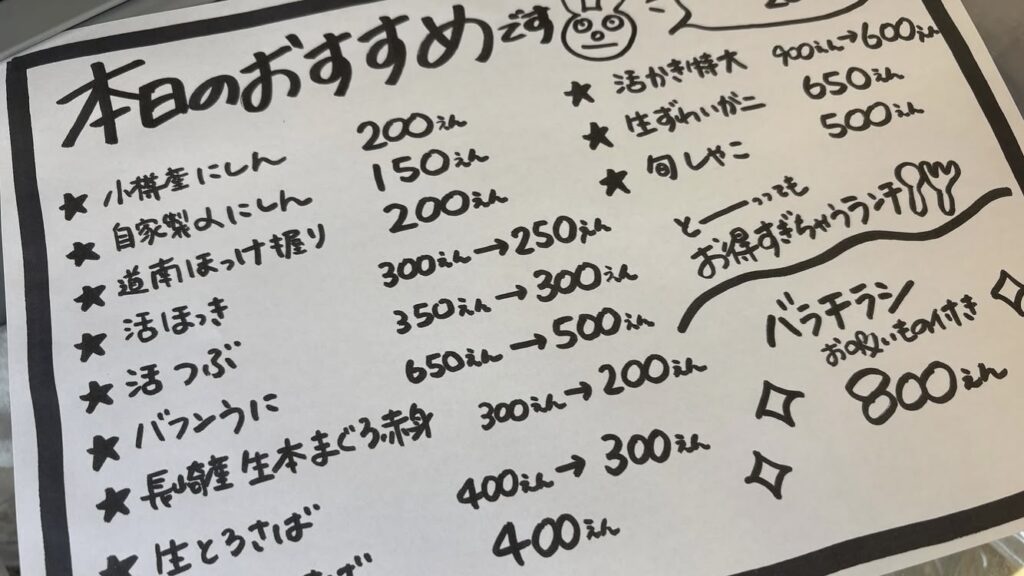 本日のおすすめです
★ 小樽産にしん 200えん
★ 自家製〆にしん 150えん
★ 道南ほっけ握り 200えん
★ 活ほっき 300えん→250えん
★ 活つぶ 350えん→300えん
★ バフンうに 650えん→500えん
★ 長崎産生本まぐろ赤身 300えん→200えん
★ 生とろさば 400えん→300えん
400えん
★ 活かき特大 900えん→600えん
★ 生ずわいガニ 650えん
★ 旬しゃこ 500えん
とーーっっても
お得すぎちゃうランチ
バラチラシ
お吸いもの付き
800えん